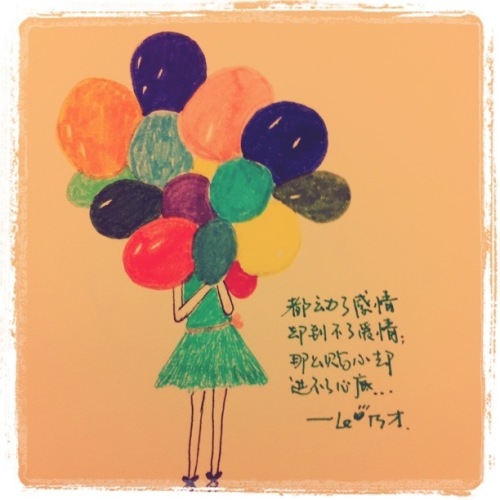 都动了感情
却到不了爱情;
那么贴心却
进不了心底...
—Le 乃才.